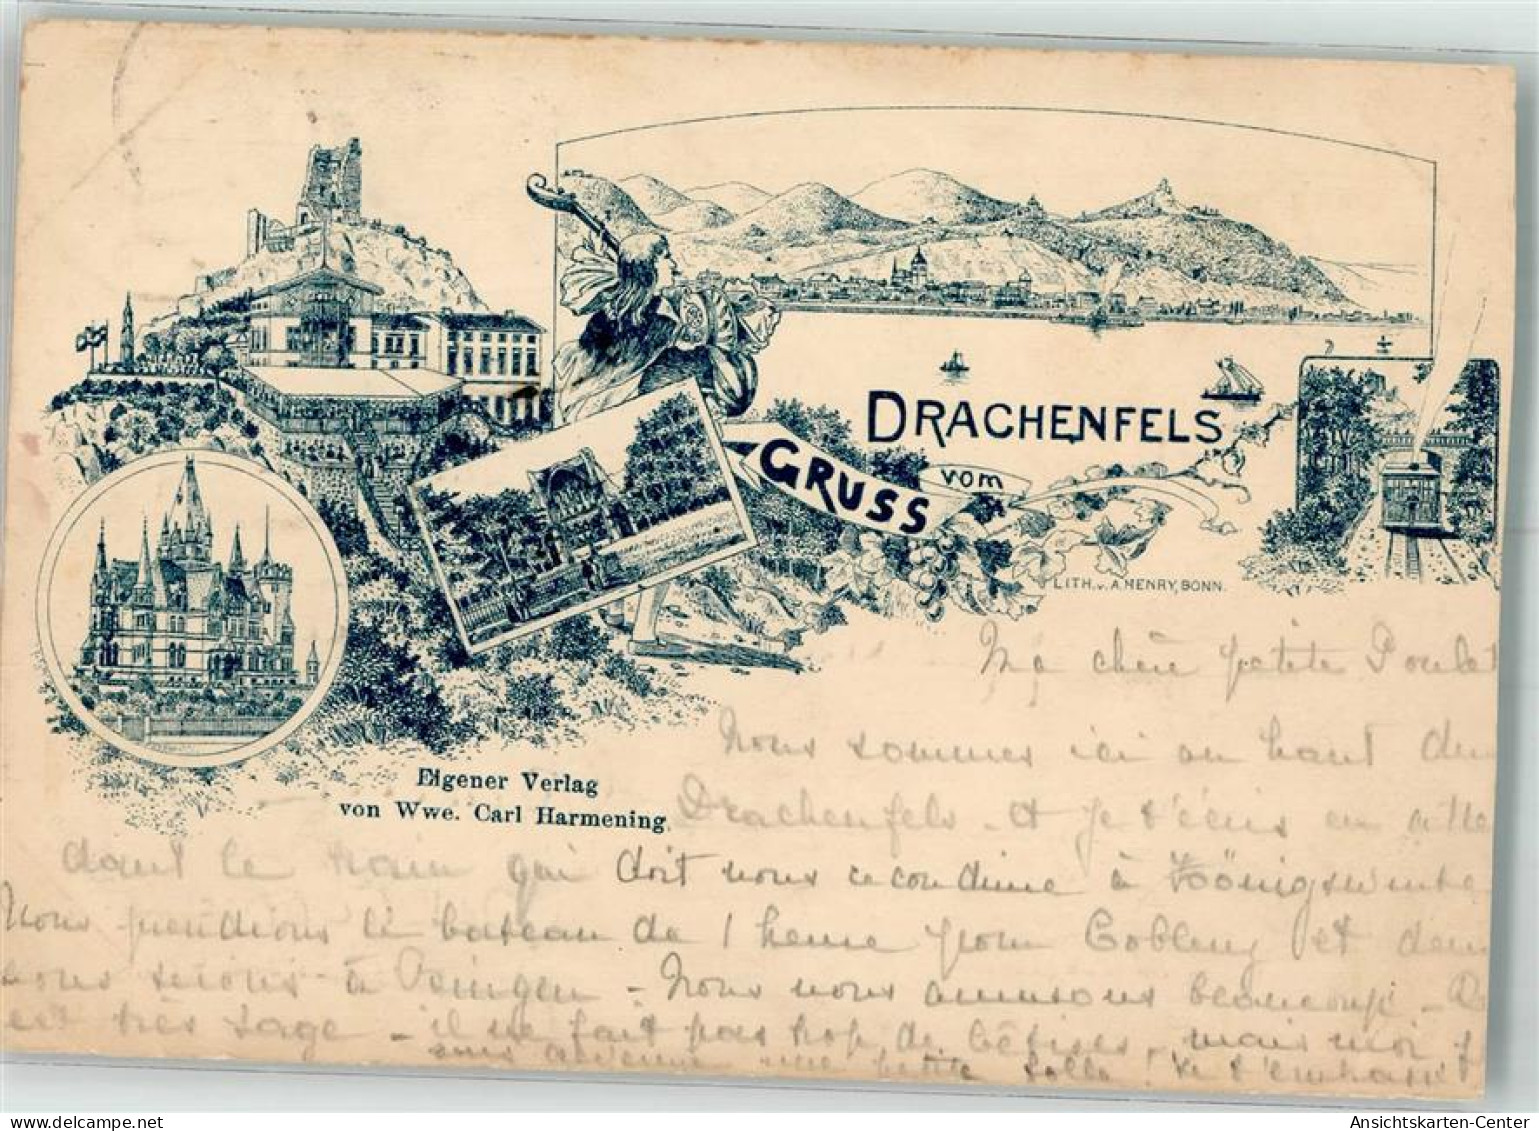 DRACHENFELS
GRUSS
vom
LITH. v. A. HENRY, BONN.
Eigener Verlag
von Wwe. Carl Harmening
Ma chère petite Poule
Nous sommes ici en haut du
Drachenfels - et je t'écris en atten
dant le train qui doit nous reconduire à Königswinte
Nous prendrons le bateau de 1 heure pour Coblenz et dem
nous serions à Bingen - Nous nous amusons beaucoup -
est très sage - il ne fait pas trop de bêtises, mais moi j
suis devenue une petite folle! Je t'embrasse
© Ansichtskarten-Center